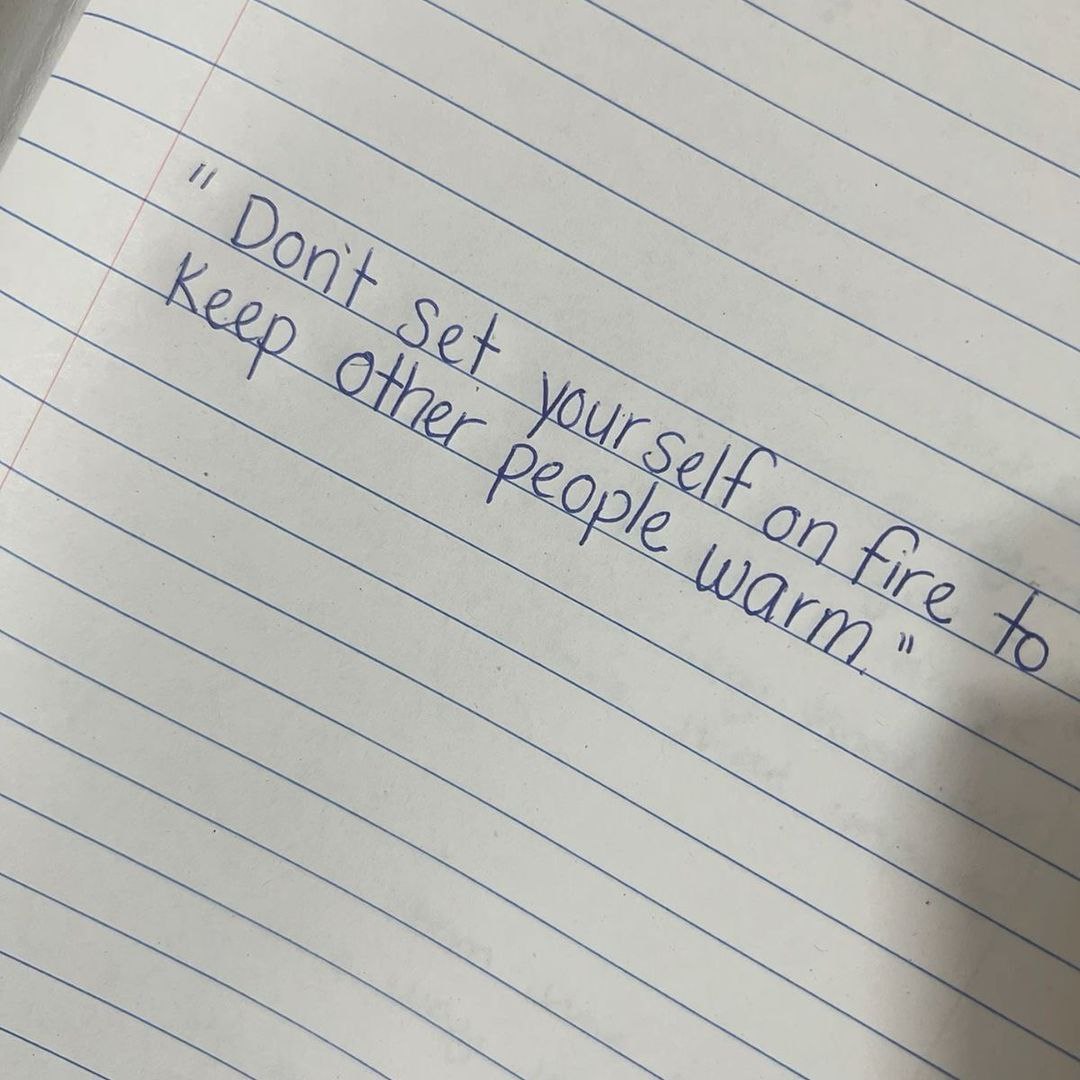 "Don't set yourself on fire to
Keep other people warm."